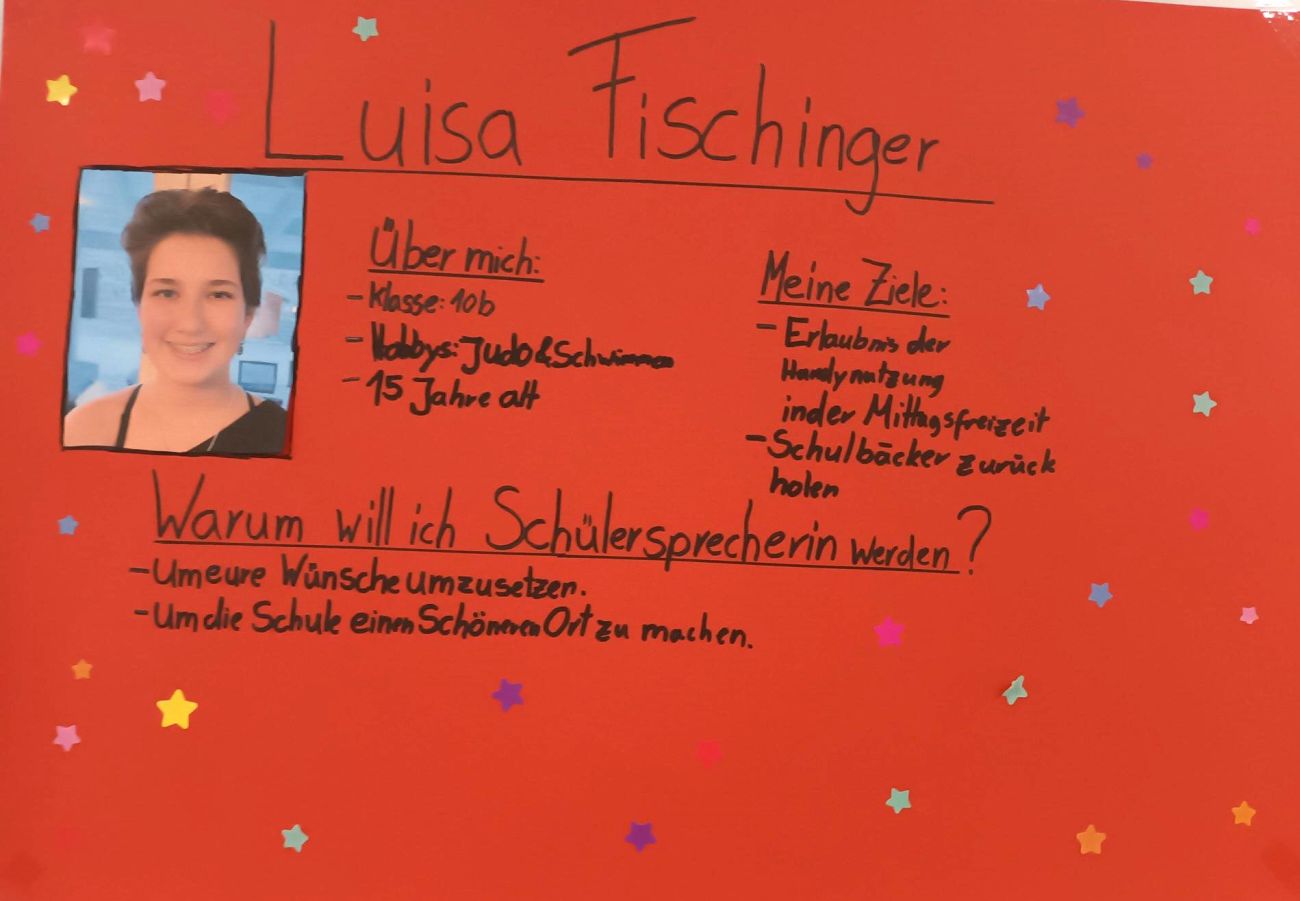 Luisa Fischinger
Über mich:
- Klasse: 10b
- Hobbys: Judo & Schwimmen
- 15 Jahre alt
Meine Ziele:
- Erlaubnis der
Handynutzung
in der Mittagsfreizeit
- Schulbäcker zurück
holen
Warum will ich Schülersprecherin werden?
- Um eure Wünsche umzusetzen.
- Um die Schule einen Schöneren Ort zu machen.